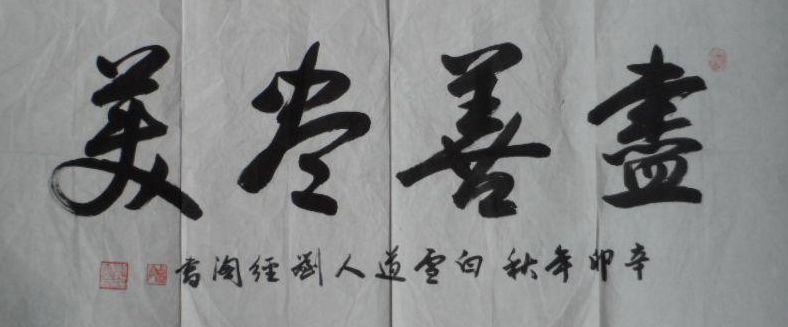 盡善尽美
辛卯年秋白雲道人劉經阁書